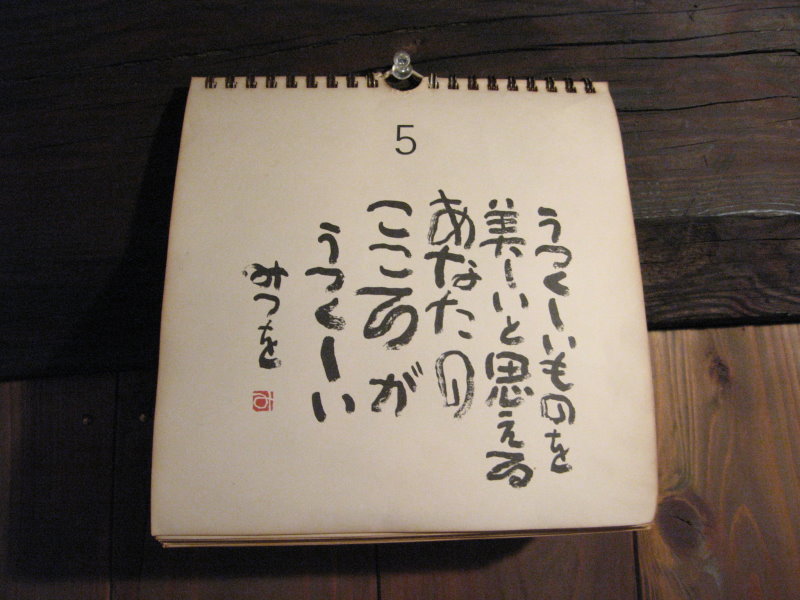 5
うつくしいものを
美しいと思える
あなたの
こころが
うつくしい
みつを